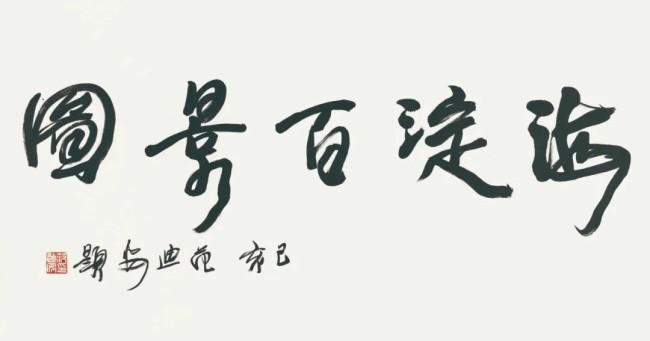 海淀百景圖
己亥 范迪安題